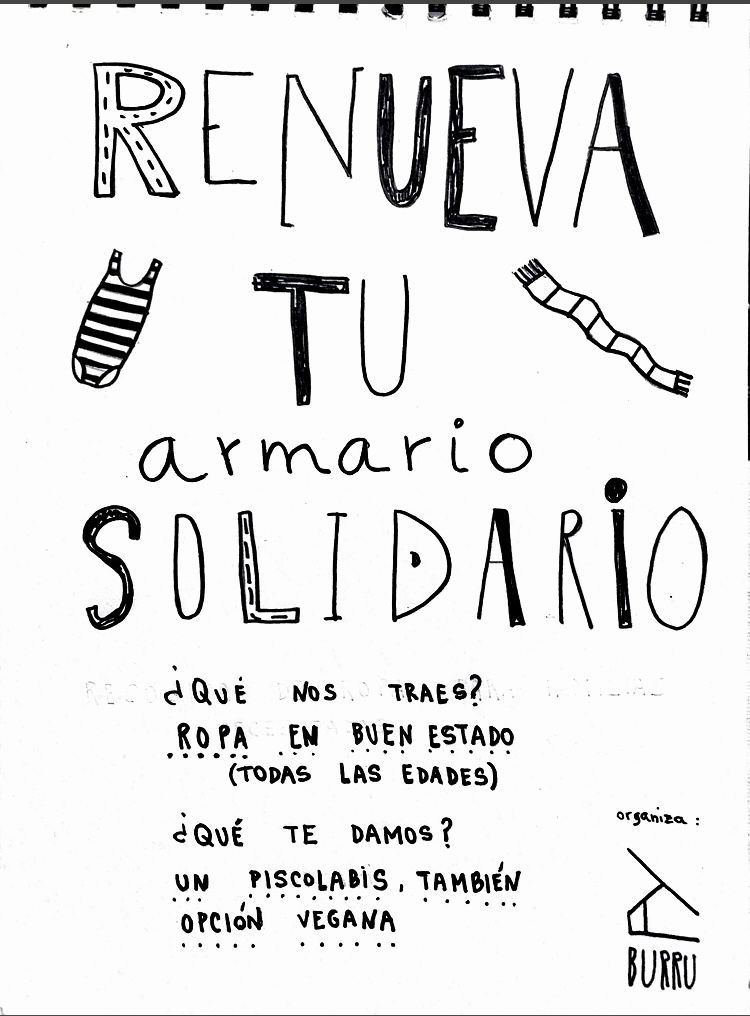 RENUEVA
TU
armario
SOLIDARiO
¿QUÉ NOS TRAES?
ROPA EN BUEN ESTADO
(TODAS LAS EDADES)
¿QUÉ TE DAMOS?
UN PISCOLABiS, TAMBIÉN
OPCIÓN VEGANA
organiza:
BURRU